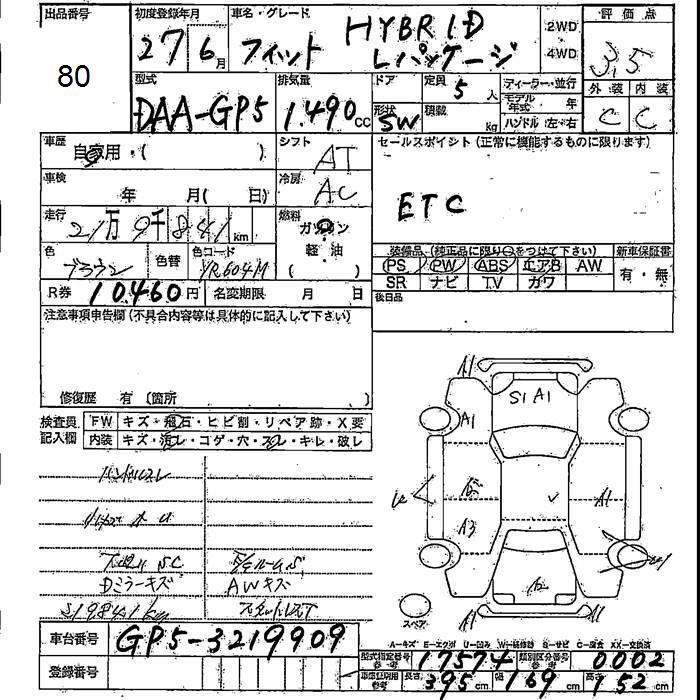 出品番号
80
初度登録年月
27 6月
車名・グレード
フィット HYBRID
Lパッケージ
2WD
4WD
評価点
3.5
外装 内装
C C
型式
DAA-GP5
排気量
1.490cc
ドア
形状
SW
定員
5人
積載
kg
ディーラー・並行
モデル年式 年
ハンドル(左・右)
車歴
自家用・( )
シフト
AT
セールスポイント(正常に機能するものに限ります)
ETC
車検
年 月( 日)
冷房
AC
走行
21万9千841km
燃料
ガソリン
軽・油
( )
色
ブラウン
色替
色コード
YR604M
装備品(純正品に限り○をつけて下さい)
PS PW ABS エアB AW
SR ナビ TV カワ
新車保証書
有・無
R券
10460円
名変期限 月 日
後日品
注意事項申告欄(不具合内容等は具体的に記入して下さい)
修復歴 有(箇所
検査員記入欄
FW キズ・飛石・ヒビ割・リペア跡・X要
内装 キズ・汚レ・コゲ・穴・スレ・キレ・破レ
ハンドルスレ
下廻りSC
Dミラーキズ
AWキズ
219841km
A1
A1
S1 A1
A3
A1
A1
A1
スペアー
A-キズ E-エクボ U-凹み W-補修跡 S-サビ C-腐食 XX-交換済
車台番号
GP5-3219909
登録番号
型式指定番号
参考
17574
類別区分番号
参考
0002
車庫証明用
参考
長さ 395cm
幅 169cm
高さ 152cm